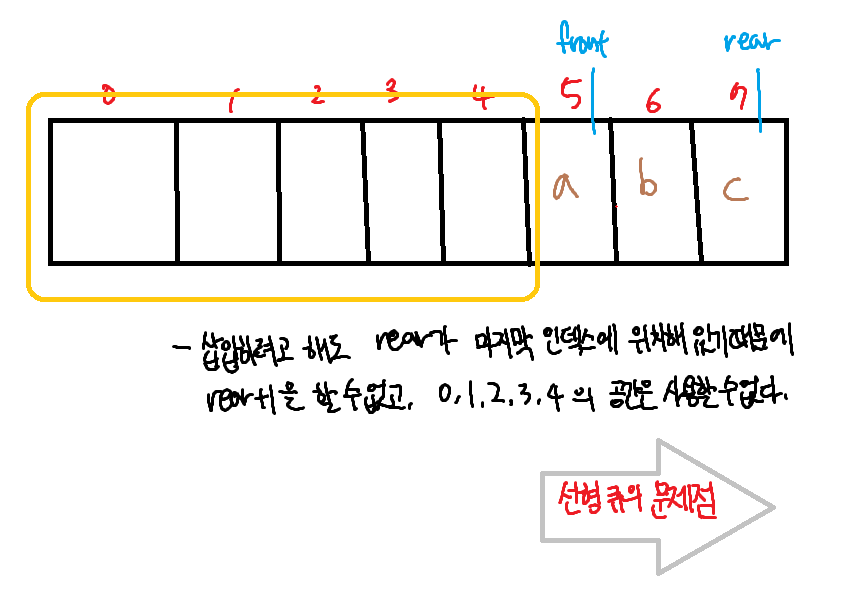 front rear
0 1 2 3 4 5 6 7
a b c
- 삽입하려고 해도 rear가 마지막 인덱스에 위치해 있기때문에
rear+1을 할 수 없고, 0,1,2,3,4 의 공간은 사용할 수 없다.
선형 큐의 문제점